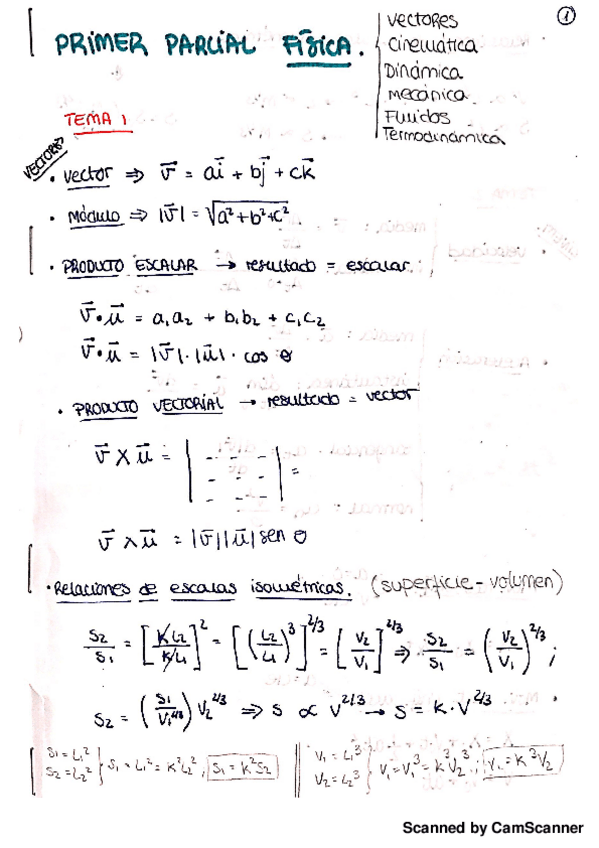 ①
PRIMER PARCIAL FÍSICA.
Vectores
Cinemática
Dinámica
Mecánica
Fluidos
Termodinámica
TEMA 1
VECTORES
• Vector ⇒ v⃗ = ai⃗ + bj⃗ + ck⃗
• Módulo ⇒ |v⃗| = √a²+b²+c²
• PRODUCTO ESCALAR → resultado = escalar.
v⃗ • u⃗ = a₁a₂ + b₁b₂ + c₁c₂
v⃗ • u⃗ = |v⃗| · |u⃗| · cos θ
• PRODUCTO VECTORIAL → resultado = vector
v⃗ X u⃗ = | - - - | =
v⃗ ∧ u⃗ = |v⃗||u⃗| sen θ
• Relaciones de escalas isométricas. (superficie - volumen)
S₂/S₁ = [K L₂/K L₁]² = [(L₂/L₁)³]^2/3 = [V₂/V₁]^2/3 ⇒ S₂/S₁ = (V₂/V₁)^2/3 ;
S₂ = (S₁/V₁^2/3) V₂^2/3 ⇒ S ∝ V^2/3 → S = K · V^2/3
S₁ = L₁²
S₂ = L₂² } S₁ = L₁² = K²L₂² ; S₁ = K²S₂
V₁ = L₁³
V₂ = L₂³ } V₁ = V₁³ = K³V₂³ ; V₁ = K³V₂
Scanned by CamScanner